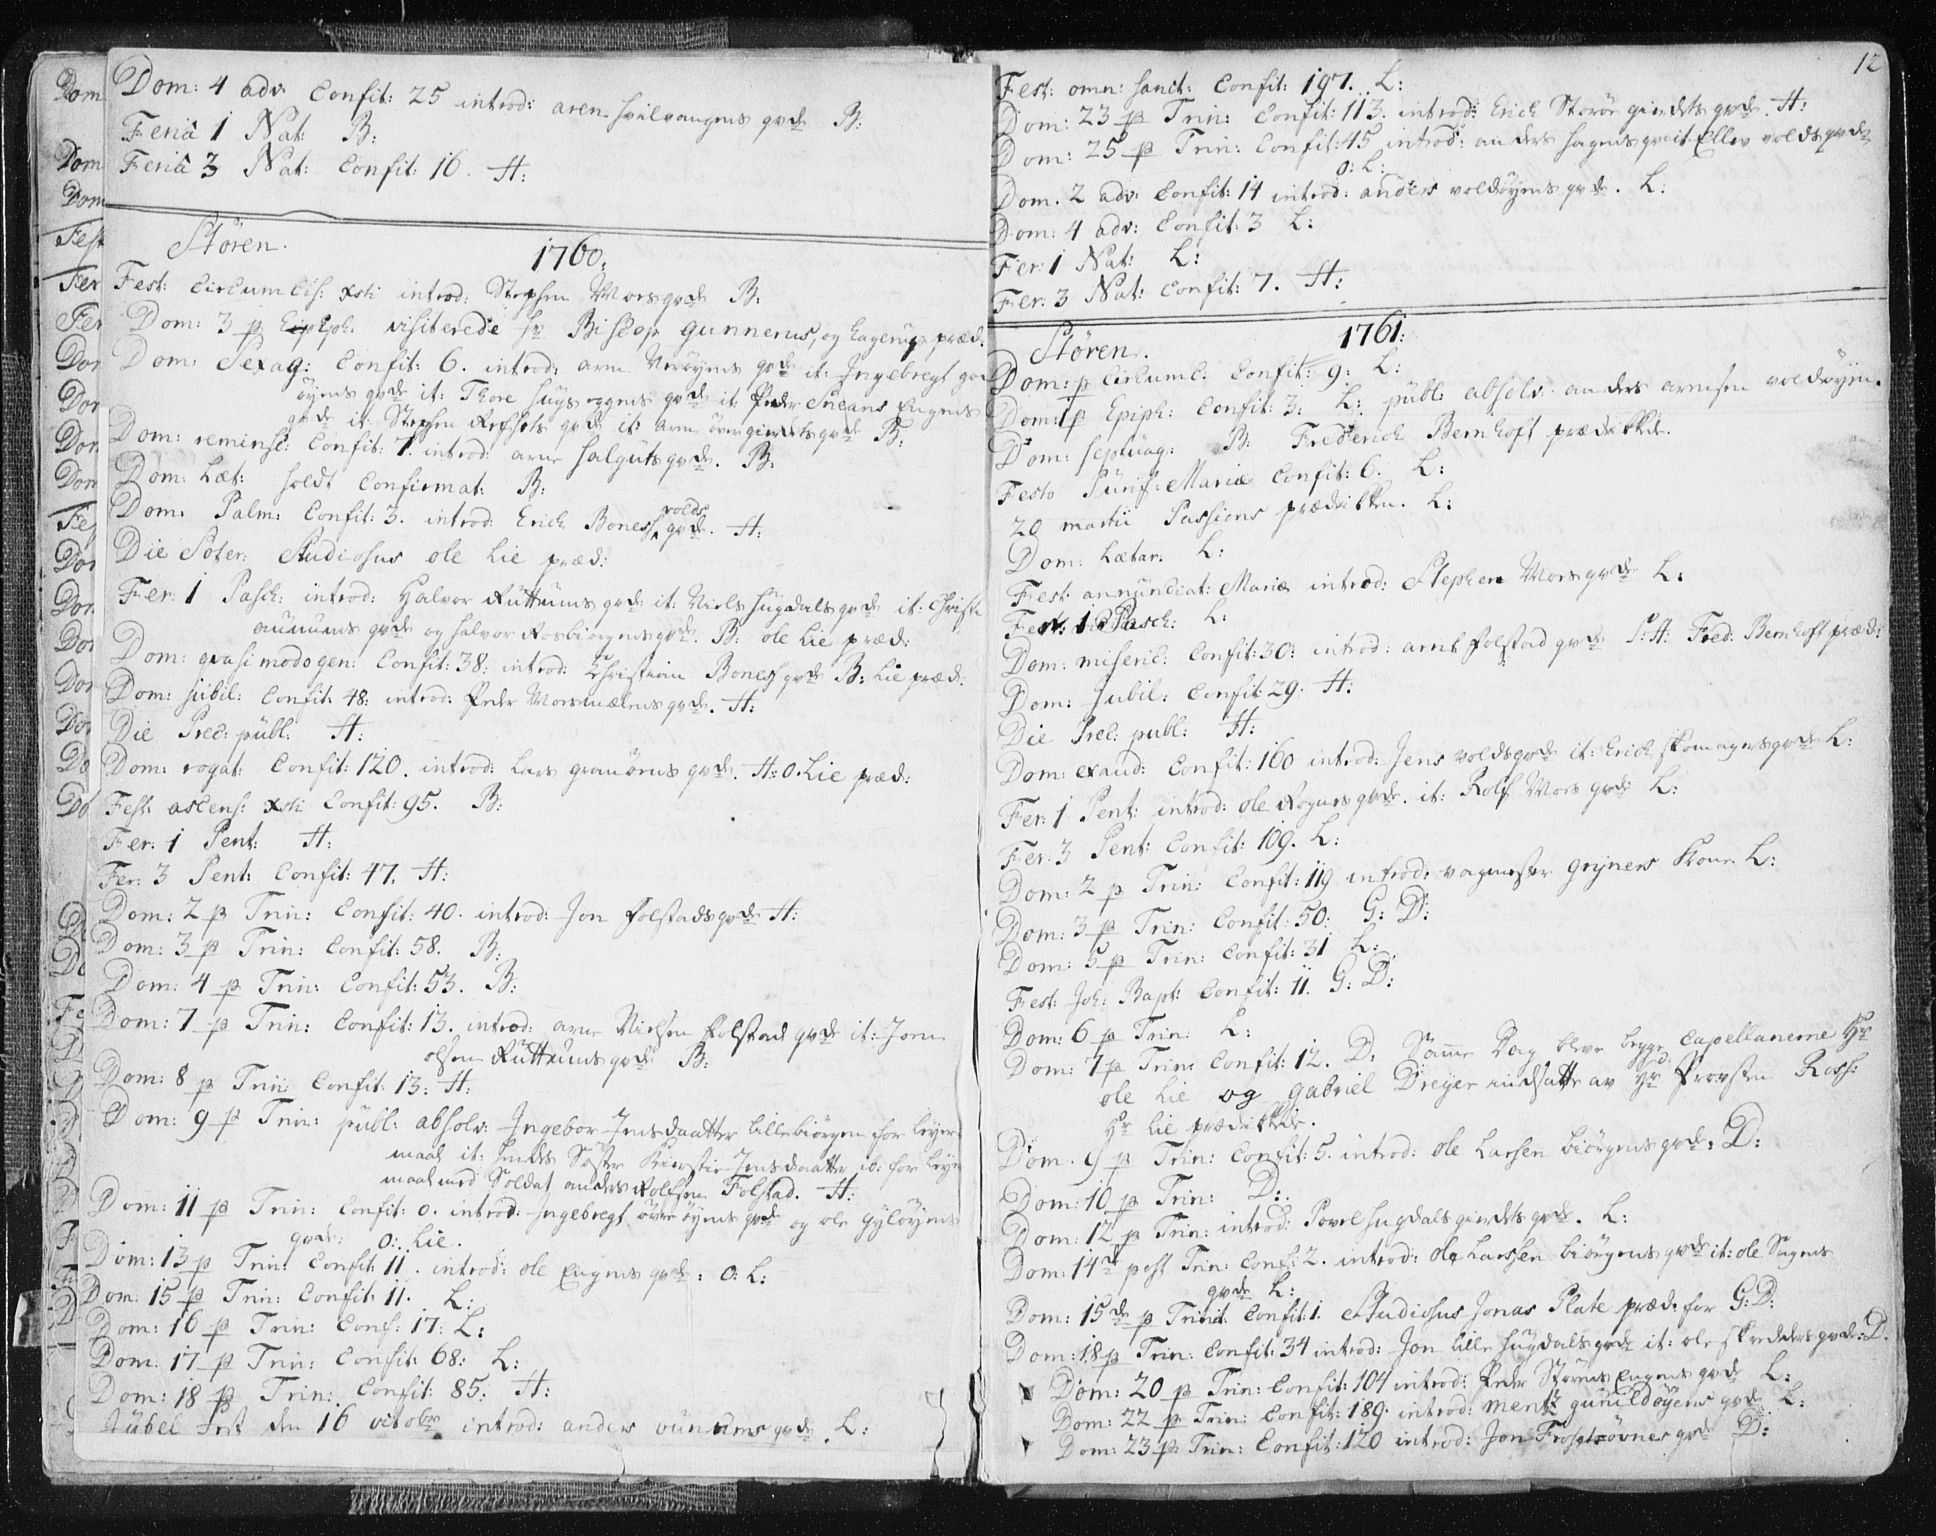 Dom: 4 adv: Confit: 25 introd: aren hvilvangens qvde B:
Feriâ 1 Nat: B:
Feriâ 3 Nat: Confit: 16. H:
Stören. 1760.
Fest: Circumcis: Xsti introd: Stephen Mors qvde B:
Dom: 3 p Epiph: visiterede Hr Biscop Gunnerus, og Hagerup præd.
Dom: Sexag: Confit: 6. introd: arne qvde it: Ingebregt
öyens qvde it: Thore hugs qvde it: Peder Engens
qvde it: Stephen qvde it: arne övergierdets qvde B:
Dom: reminisc: Confit: 7. introd: arne halguts qvde. B:
Dom: Læt: holdt Confirmat: B:
Dom: Palm: Confit: 3. introd: Erich Bones volds qvde. H:
Die Soter: Studiosus ole Lie præd:
Fer: 1 Pasch: introd: Halvor Ruttums qvde it: Niels hugdals qvde it: Christ
aunums qvde og halvor Rosbiörgens qvde. B: ole Lie præd:
Dom: qvasimodogen: Confit: 38: introd: Christian Bones qvde B: Lie præd:
Dom: Jubil: Confit: 48: introd: Peder Morsmælens qvde. H:
Die Prec: publ: H:
Dom: rogat: Confit: 120. introd: Lars gramörens qvde. H: O: Lie præd:
Fest: ascens: Xsti Confit: 95. B:
Fer: 1 Pent: H:
Fer: 3 Pent: Confit: 47. H:
Dom: 2 p Trin: Confit: 40. introd: Jon folstads qvde H:
Dom: 3 p Trin: Confit: 58. B:
Dom: 4 p Trin: Confit: 53. B:
Dom: 7 p Trin: Confit: 13. introd: arne Nielsen folstad qvde it: Joen
olsen Ruttums qvde B:
Dom: 8 p Trin: Confit: 13: H:
Dom: 9 p Trin: publ: absolv: Ingebor Jensdaatter lillebiörgen for leyer
maal it: hendes Söster Kierstie Jensdaatter ib: for leyer
maal med Soldat anders Rolfsen Folstad. H:
Dom: 11 p Trin: Confit: 0. introd: Ingebregt övre öyens qvde og ole Gylöyens
qvde: O: Lie.
Dom: 13 p Trin: Confit: 11. introd: ole Engens qvde: O: L:
Dom: 15 p Trin: Confit: 11. L:
Dom: 16 p Trin: Conf: 17: L:
Dom: 17 p Trin: Confit: 68: L:
Dom: 18 p Trin: Confit: 85: H:
Jubel Fest den 16 octobr introd: anders ounums qvde. L:
12
Fest: omn: Sanct: Confit: 197. L:
Dom: 23 p Trin: Confit: 113. introd: Erich Storör gierdets qvde. H:
Dom: 25 p Trin: Confit: 45 introd: anders hagens qv: it: Ellev volds qvde
O: L:
Dom. 2 adv: Confit: 14 introd: anders voldöyens qvde. L:
Dom: 4 adv: Confit: 3 L:
Fer: 1 Nat: L:
Fer: 3 Nat: Confit: 7. H:
Stören. 1761:
Dom: p Circumc: Confit: 9: L:
Dom: 1 p Epiph: Confit: 3: L: publ: absolv: anders arnesen voldöyen.
Dom: septuag: B: Frederich Bernhoft prædikkede.
Festo Purif: Mariæ Confit: 6. L:
20 martii Passions prædikken. L:
Dom: Lætar: L:
Fest: annunciat: Mariæ introd: Stephen Mors qvde L:
Fer: 1 Pasch: L:
Dom: miseric: Confit: 30: introd: arnt folstad qvde P: H: Fred: Bernhoft præd:
Dom: Jubil: Confit: 29. H:
Die Prec: publ: H:
Dom: exaud: Confit: 160 introd: Jens volds qvde it: Erich skomagers qvde L:
Fer: 1 Pent: introd: ole Rognes qvde. it: Rolf Mors qvde L:
Fer: 3 Pent: Confit: 109. L:
Dom: 2 p Trin: Confit: 119 introd: vagmester Gryners Kone. L:
Dom: 3 p Trin: Confit: 50: G: D:
Dom: 5 p Trin: Confit: 31 L:
Fest: Joh: Bapt: Confit: 11. G: D:
Dom: 6 p Trin: L:
Dom: 7 p Trin: Confit: 12. D: Samme Dag bleve begge Capellanerne Hr
ole Lie og Gabriel Dreyer indsatte av Hr Provsten Rosh:
Hr Lie prædikkede.
Dom. 9 p Trin: Confit: 5. introd: ole Larsen biörgens qvde: D:
Dom: 10 p Trin: D:
Dom: 12 p Trin: introd: Povel hugdals gierdets qvde. L:
Dom: 14de post Trin: Conf: 2. introd: ole Larssen biörgens qvde it: ole Sagens
qvde L:
Dom: 15de p Trinit: Confit: 1. Studiosus Jonas Plate præd: for G: D:
Dom: 18 p Trin: Confit: 34 introd: Jon lille hugdals qvde it: ole skredders qvde: D.
Dom: 20 p Trin: Confit: 104 introd: Peder Störens Engens qvde L:
Dom: 22 p Trin: Confit: 189. introd: mentz gunildöyens qvde. L:
Dom: 23 p Trin: Confit: 120 introd: Jon qvde D: